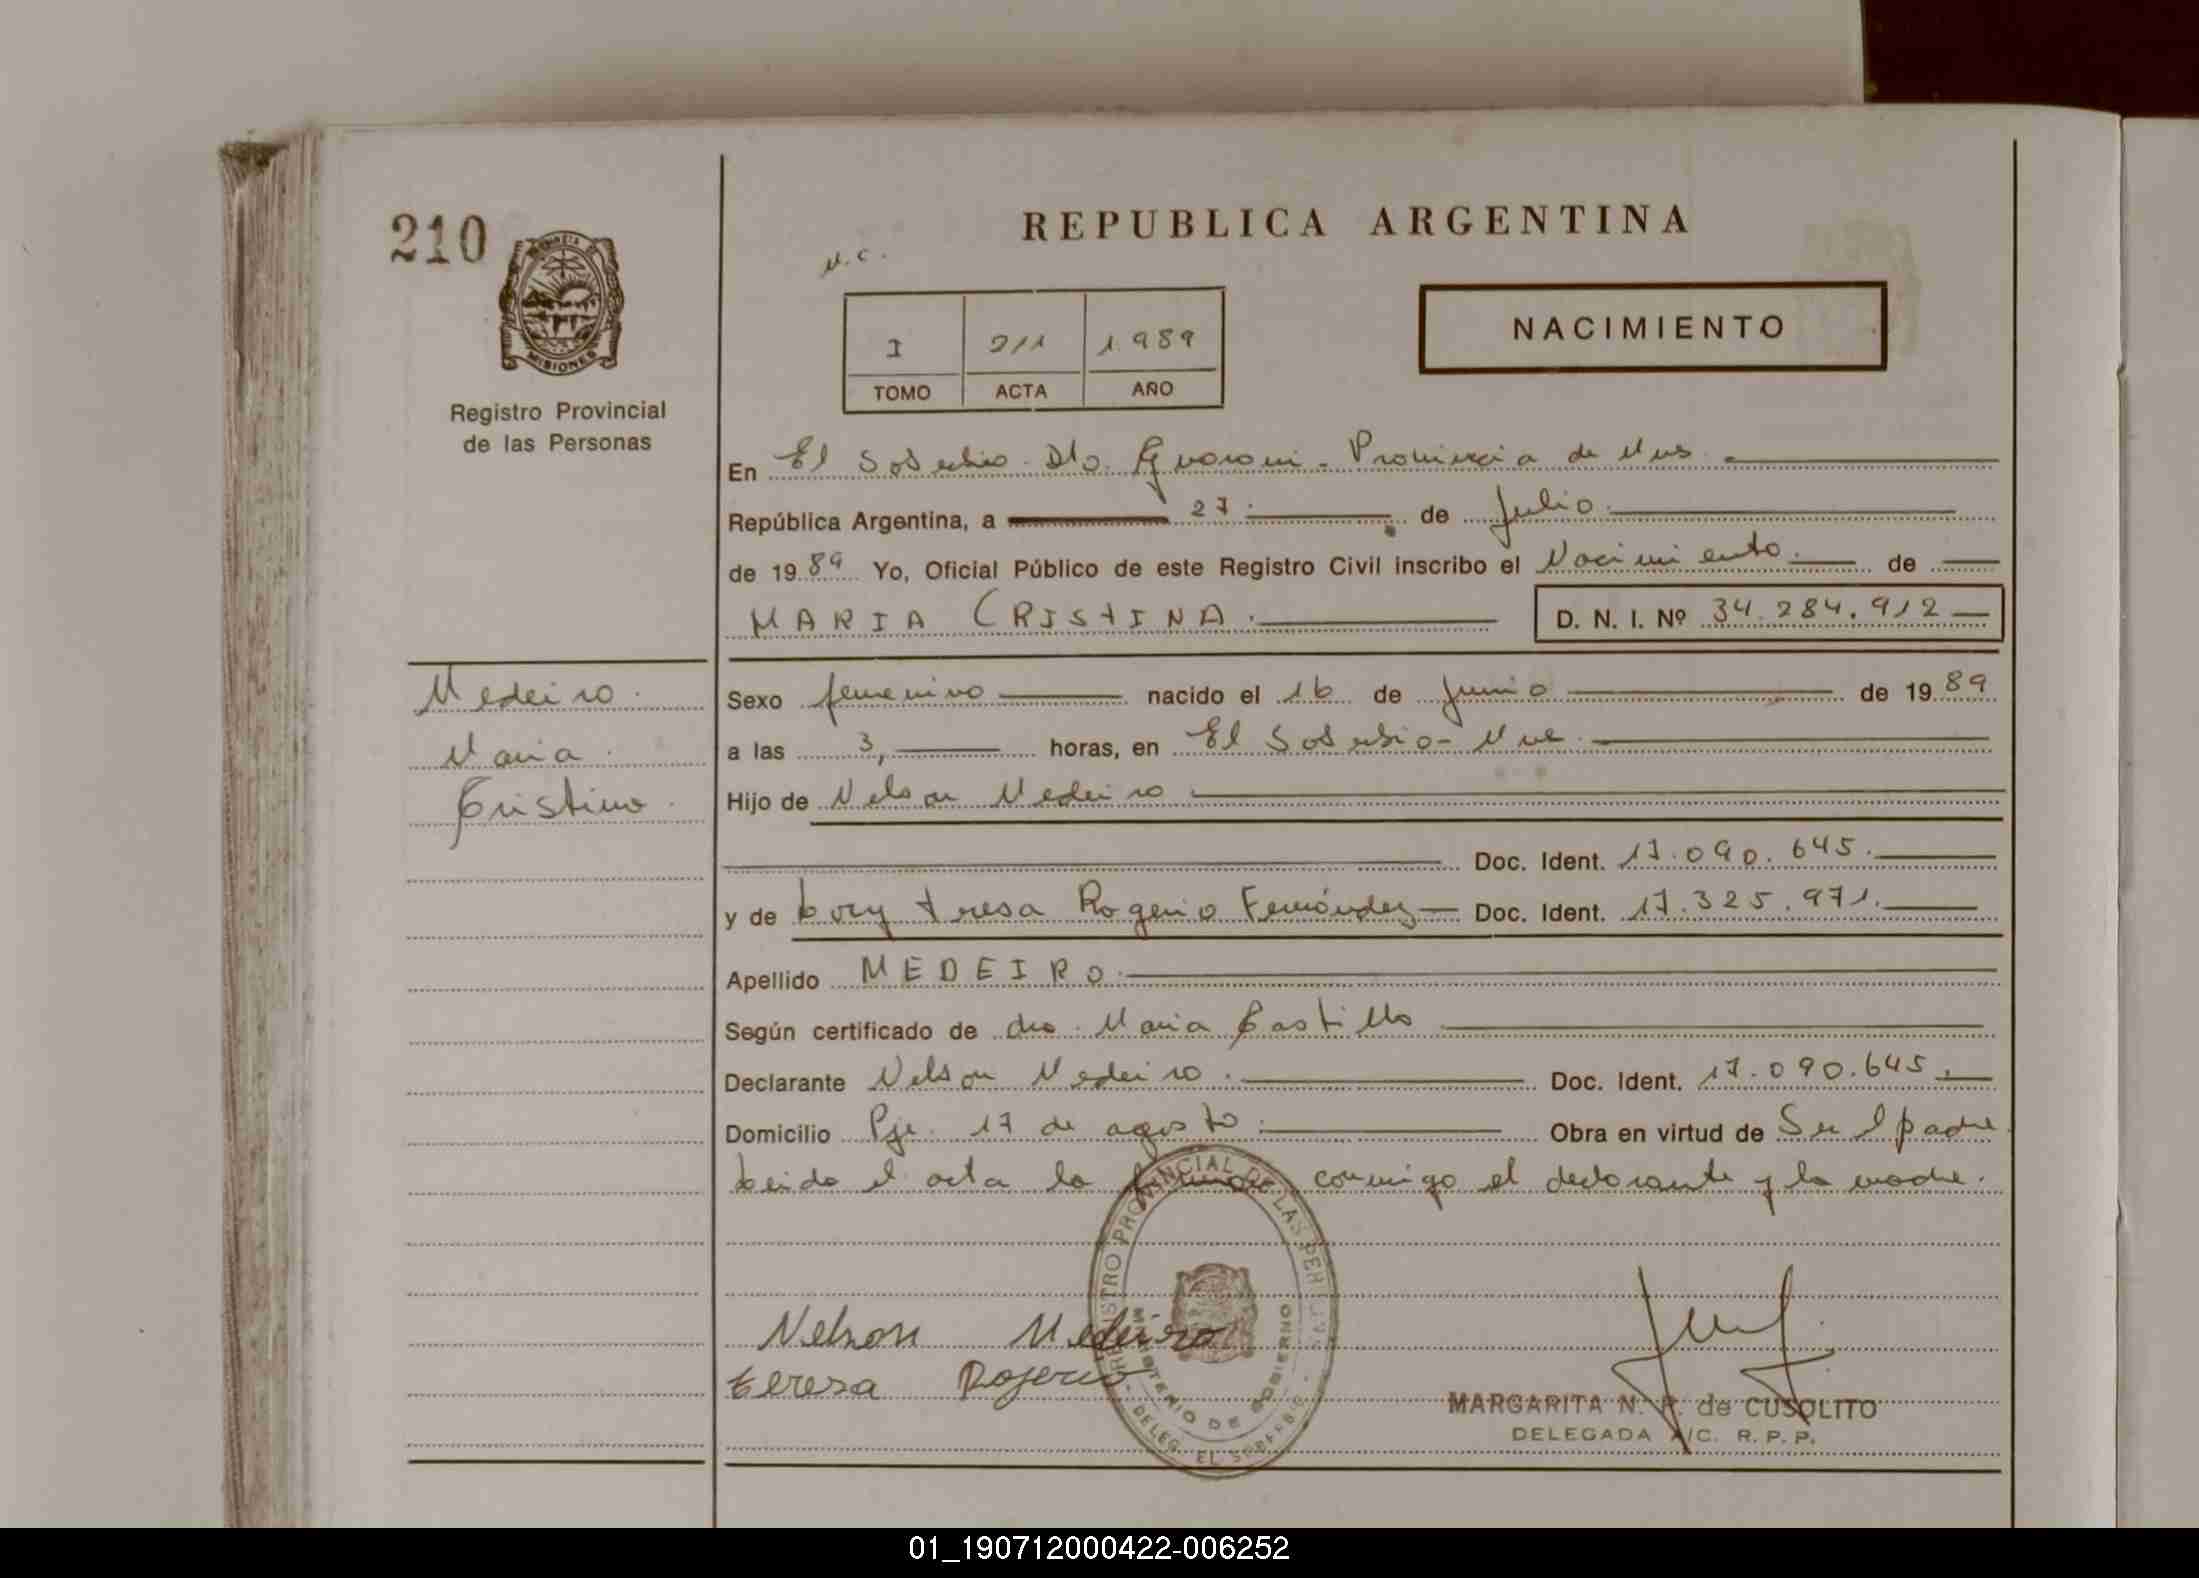 210
REPUBLICA ARGENTINA
MISIONES
Registro Provincial
de las Personas
I 211 1.989
TOMO ACTA AÑO
NACIMIENTO
En El Soberbio. Dto. Guarani. Provincia de Mnes.
República Argentina, a 27 de Julio
de 1989 Yo, Oficial Público de este Registro Civil inscribo el Nacimiento. de
MARIA CRISTINA. D. N. I. Nº 34.284.912
Medeiro.
Maria.
Cristina.
Sexo femenino nacido el 16 de Junio de 1989
a las 3, horas, en El Soberbio -
Hijo de Nelson Medeiro
Doc. Ident. 17.090.645.
y de Tresa Rogerio Fernández Doc. Ident. 17.325.971.
Apellido MEDEIRO.
Según certificado de dra. Maria Castillo
Declarante Nelson Medeiro. Doc. Ident. 17.090.645.
Domicilio Pje. 17 de agosto. Obra en virtud de Ser el padre.
Leida el acta la conmigo el declarante y la madre.
Nelson Medeiro
teresa Rogerio
REGISTRO PROVINCIAL DE LAS PERSONAS
MINISTERIO DE GOBIERNO
DELEG. EL SOBERBIO
MARGARITA N. P. de CUSOLITO
DELEGADA A/C. R. P. P.
01_190712000422-006252